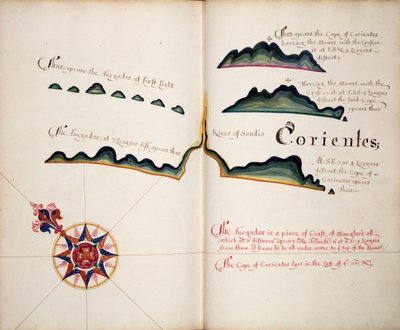 Thus apeare the Anegadas at first sight
The Anegadas; at 7 Leagues dist: apears thus
Thus apears the Cape of Corientes
haveing the Mount with the Cross on
it at E.B.N. 4 Leagues
distant:
Haveing the Mount with the
Cross on it at E.S.E. 4 Leagues
distant the first Cape
apears thus
River of Sandio
Corientes;
At: SE. 3 or 4 Leagues
distant the Cape of
Corientes apears
thus:
The Anegadas is a piece of Coast, of
which at a distance apears like Islands: at 6 or 7 Leagues
from them it seems to be all under water to ye top of the Mount
The Cape of Corientes lyes in the Latt. of